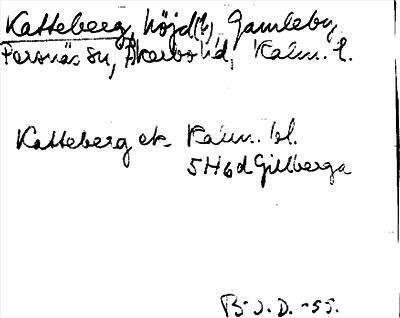 Katteberg, höjd(?) Gamleby,
Persnäs sn, Åkerbo hd, Kalm. l.
Katteberg ek Kalm. bl.
5H6d Gillberga
B. J. D. -55.